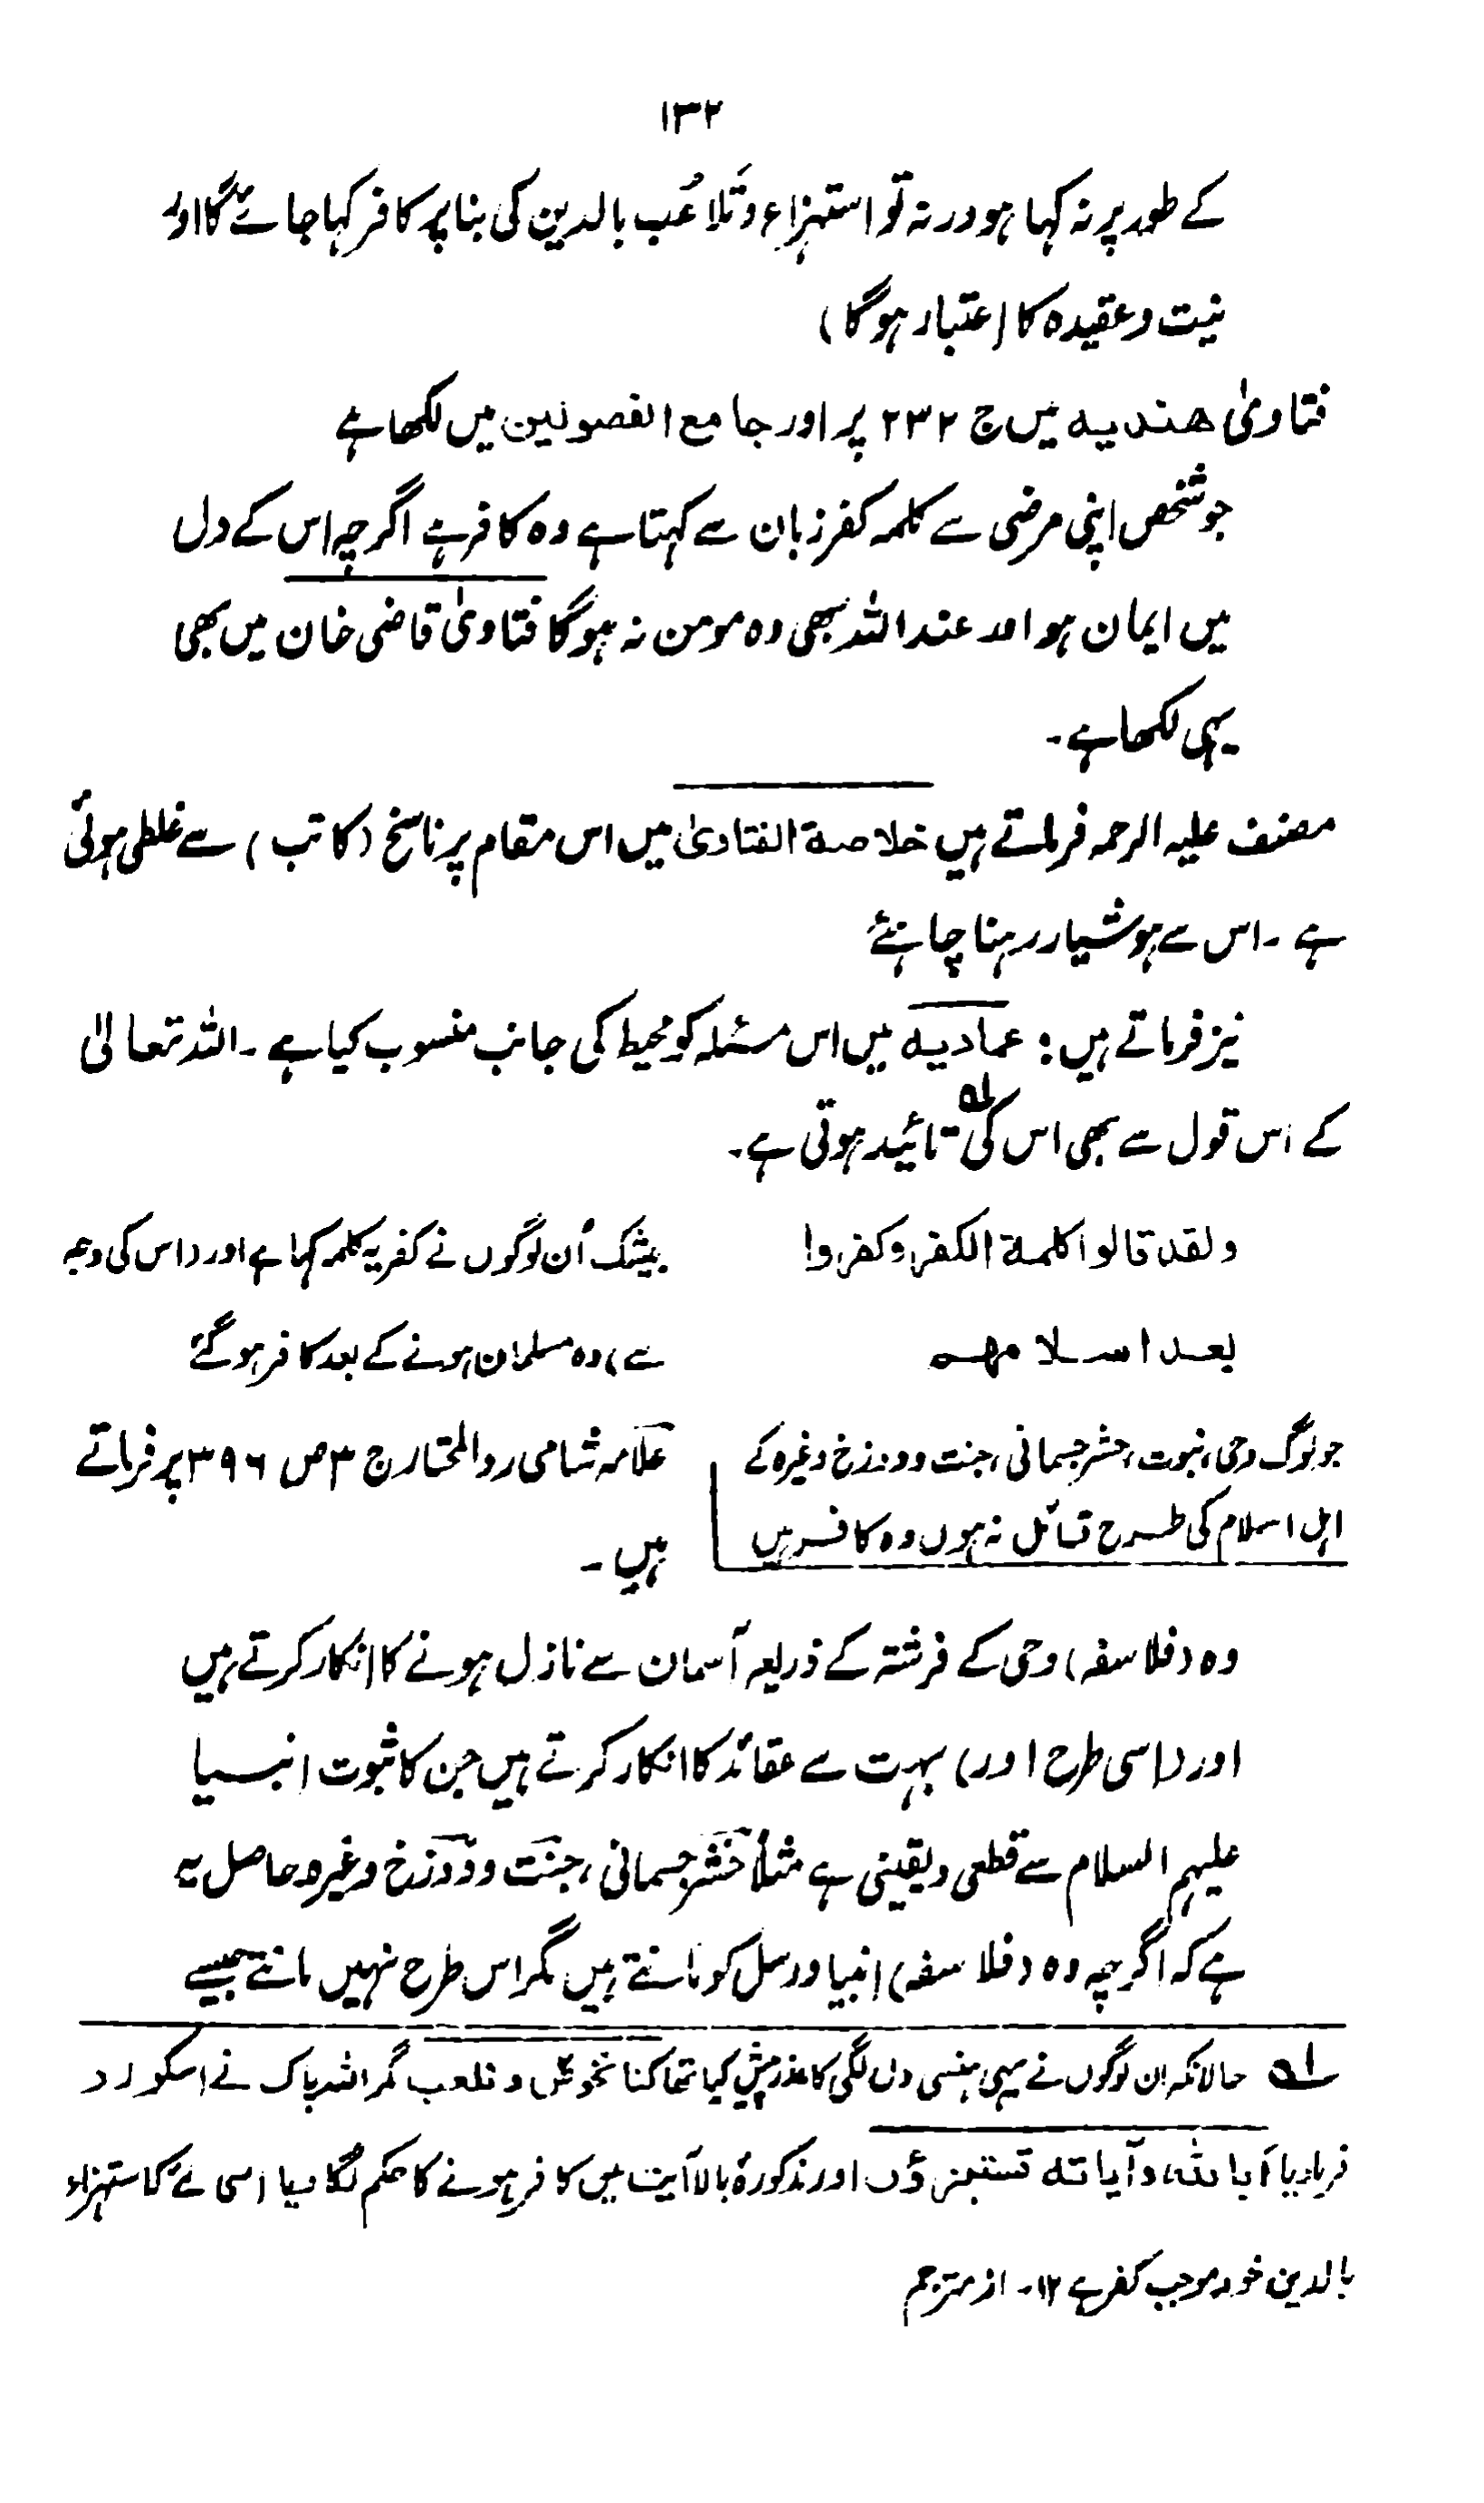 ۱۳۲
کے طور پر نہ کہا ہو ورنہ تو استہزاء و تَلاعُب بالدین کی بنا پر کافر کہا جائے گا اور
نیت و عقیدہ کا اعتبار ہوگا)
فتاویٰ ھندیہ میں ج ۲۳۲ پر اور جامع الفصولین میں لکھا ہے
جو شخص اپنی مرضی سے کلمہ کفر زبان سے کہتا ہے وہ کافر ہے اگرچہ اس کے دل
میں ایمان ہو اور عند اللہ بھی وہ مومن نہ ہوگا فتاویٰ قاضی خان میں بھی
یہی لکھا ہے۔
مصنف علیہ الرحمہ فرماتے ہیں خلاصۃ الفتاویٰ میں اس مقام پر ناسخ (کاتب) سے غلطی ہوئی
ہے۔ اس سے ہوشیار رہنا چاہئے
نیز فرماتے ہیں: عمادیہ میں اس مسئلہ کو محیط کی جانب منسوب کیا ہے۔ اللہ تعالیٰ
کے اس قول سے بھی اس کی لہ تائید ہوتی ہے۔
ولقد قالوا کلمۃ الکفر وکفروا بیشک اُن لوگوں نے کفریہ کلمہ کہا ہے اور (اس کی وجہ
بعد اسلامھم سے) وہ مسلمان ہونے کے بعد کافر ہوگئے
جو لوگ وحی، نبوت، حشر جسمانی، جنت و دوزخ وغیرہ کے
اہل اسلام کی طرح قائل نہ ہوں وہ کافر ہیں
علامہ شامی رد المختار ج ۳ ص ۳۹۶ پر فرماتے
ہیں۔
وہ (فلاسفہ) وحی کے فرشتہ کے ذریعہ آسمان سے نازل ہونے کا انکار کرتے ہیں
اور (اسی طرح اور) بہت سے عقائد کا انکار کرتے ہیں جن کا ثبوت انبیا
علیہم السلام سے قطعی و یقینی ہے مثلاً حشر جسمانی، جنت و دوزخ وغیرہ حاصل یہ
ہے کہ اگرچہ وہ (فلاسفہ) انبیا و رسل کو مانتے ہیں مگر اس طرح نہیں مانتے جیسے
لہ حالانکہ ان لوگوں نے یہی ہنسی دل لگی کا عذر پیش کیا تھا کنا نخوض و نلعب مگر اللہ پاک نے اسکو رد
فرمادیا اَبا للہ وآیاتہ تستہزؤن اور مذکورۂ بالا آیت میں کافر ہونے کا حکم لگا دیا اسی لئے کہ استہزاء
بالدین خود موجب کفر ہے ۱۲۔ از مترجم